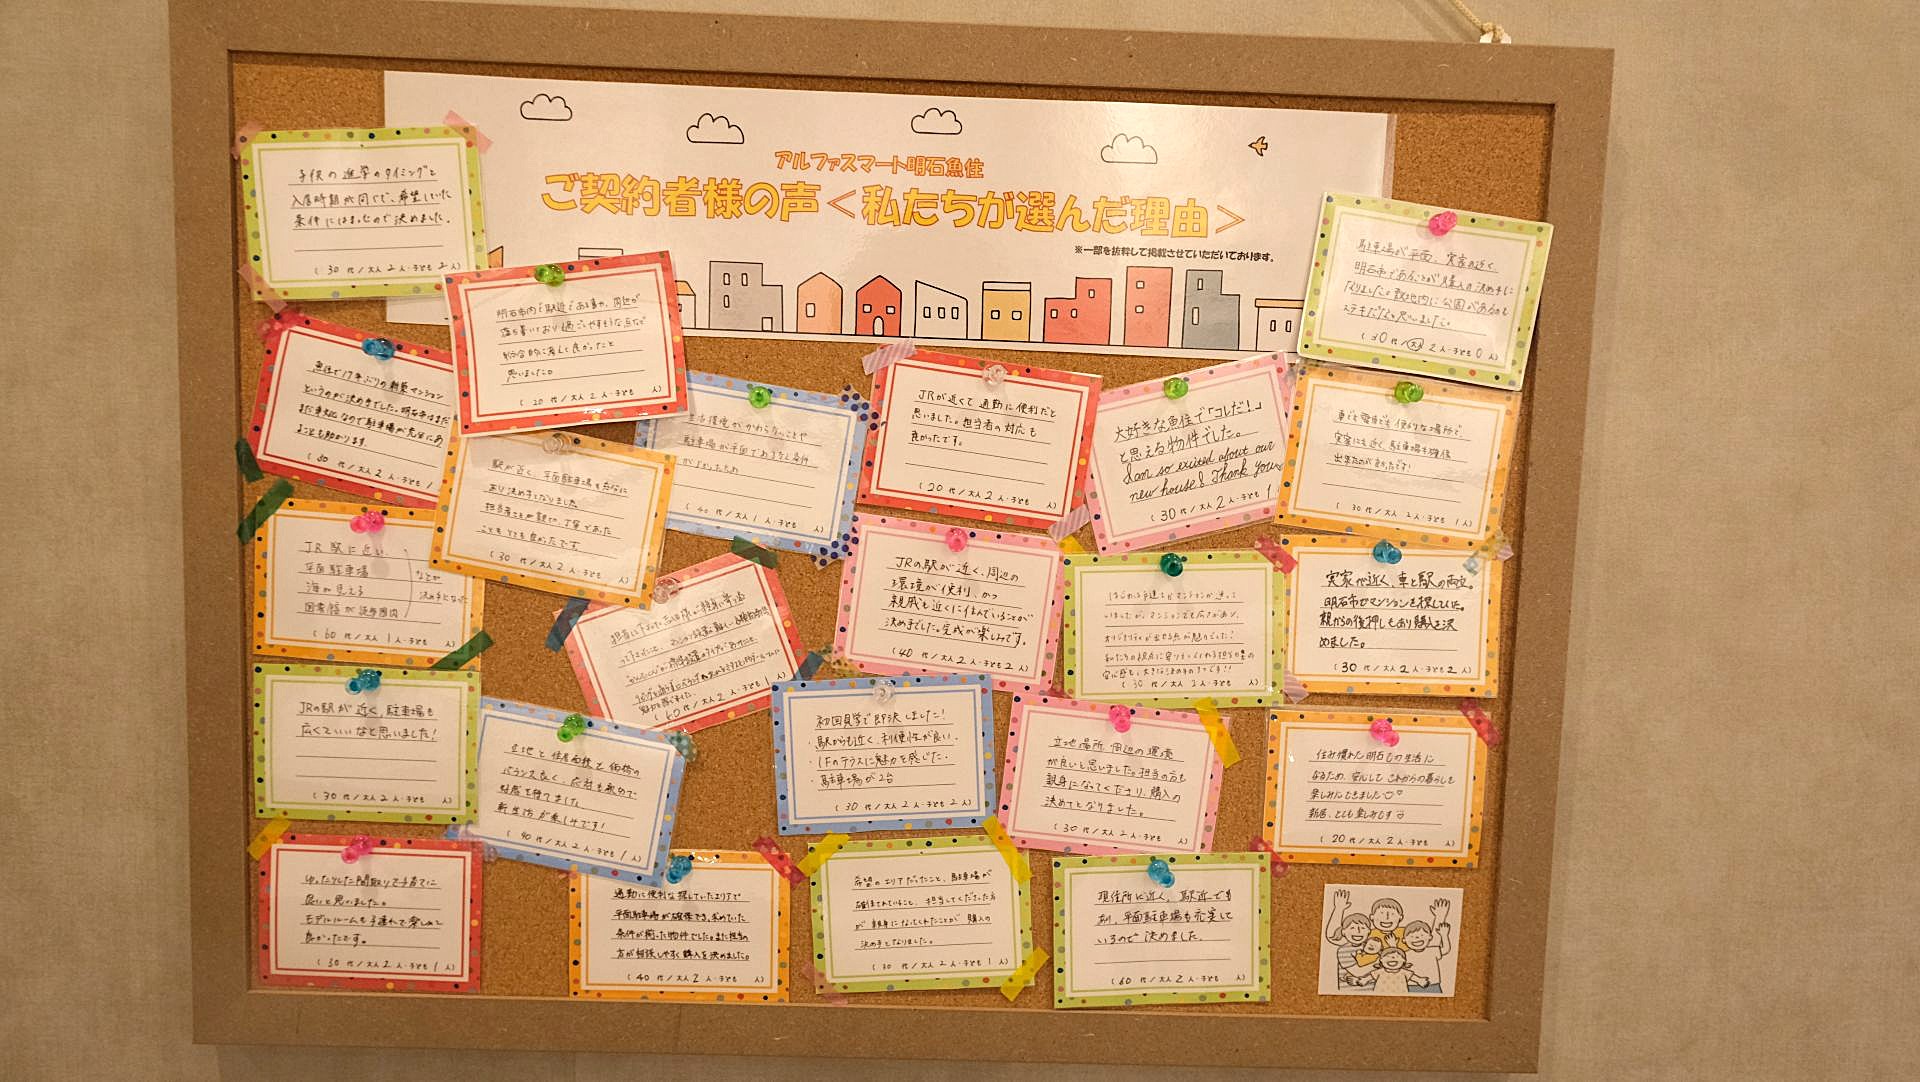 アルファスマート明石魚住
ご契約者様の声＜私たちが選んだ理由＞
※一部を抜粋して掲載させていただいております。
子供の進学のタイミングと
入居時期が同じで、希望していた
条件にはまったので決めました。
(30代/大人2人・子ども2人)
明石市内で駅近である事や、周辺が
落ち着いており過ごしやすそうな点など
総合的に考えて良かったと
思いました。
(20代/大人2人・子ども 人)
駐車場が平面、実家の近く、
明石市であることが購入の決め手に
なりました。敷地内に公園があるのも
ステキだなと思いました。
(30代/大人2人・子ども0人)
魚住で17年ぶりの新築マンション
というのが決め手でした。明石市はまだ
まだ車社会なので駐車場が充分にあ
ることも助かります。
(50代/大人2人・子ども
生活環境がかわらないことや
駐車場が平面であるなど条件
(40代/大人1人・子ども 人)
JRが近くて通勤に便利だと
思いました。担当者の対応も
良かったです。
(20代/大人2人・子ども 人)
大好きな魚住で「コレだ！」
と思える物件でした。
I am so excited about our
new house! Thank you
(30代/大人2人・子ども1
車でも電車でも便利な場所で、
実家にも近く駐車場も確保
出来たのが良かったです！
(30代/大人2人・子ども1人)
駅が近く、平面駐車場も
あり決め手となりました。
担当者さんが親切、丁寧であった
こともとても良かったです。
(30代/大人2人・子ども 人)
JR駅に近い、
平面駐車場
海が見える
図書館が徒歩圏内
などが
決め手になった
(60代/大人1人・子ども 人)
(60代/大人2人・子ども1人)
JRの駅が近く、周辺の
環境が便利、かつ
親戚も近くに住んでいることが
決め手でした。完成が楽しみです。
(40代/大人2人・子ども2人)
オリジナリティが出せる点が魅力でした！
実家が近く、車と駅の両立。
明石市でマンションを探していた。
親からの後押しもあり購入を決
めました。
(30代/大人2人・子ども2人)
JRの駅が近く、駐車場も
広くていいなと思いました！
(30代/大人2人・子ども2人)
立地と住居面積と価格の
バランス良く、応対も親切で
好感を持てました
新生活が楽しみです！
(40代/大人2人・子ども1人)
初回見学で即決しました！
・駅からも近く、利便性が良い。
・1Fのテラスに魅力を感じた。
・駐車場が2台
(30代/大人2人・子ども2人)
立地場所、周辺の環境
が良いと思いました。担当の方も
親身になってくださり、購入の
決めてとなりました。
(30代/大人2人・子ども 人)
住み慣れた明石での生活に
なるため、安心して これからの暮らしも
楽しみにできました♡♡
新居、とても楽しみです
(20代/大人2人・子ども 人)
ゆったりした間取りで子育てに
良いと思いました。
モデルルームも子連れで楽しめて
良かったです。
(30代/大人2人・子ども1人)
通勤に便利な探していたエリアで
平面駐車場が確保でき、求めていた
条件が揃った物件でした。また担当の
方が相談しやすく購入を決めました。
(40代/大人2人・子ども 人)
希望のエリアだったこと、駐車場が
確保されていること、担当してくださった方
が親身になってくれたことが購入の
決め手となりました。
(30代/大人2人・子ども1人)
現住所に近く、駅近でも
あり、平面駐車場も充実して
いるので決めました。
(60代/大人2人・子ども 人)